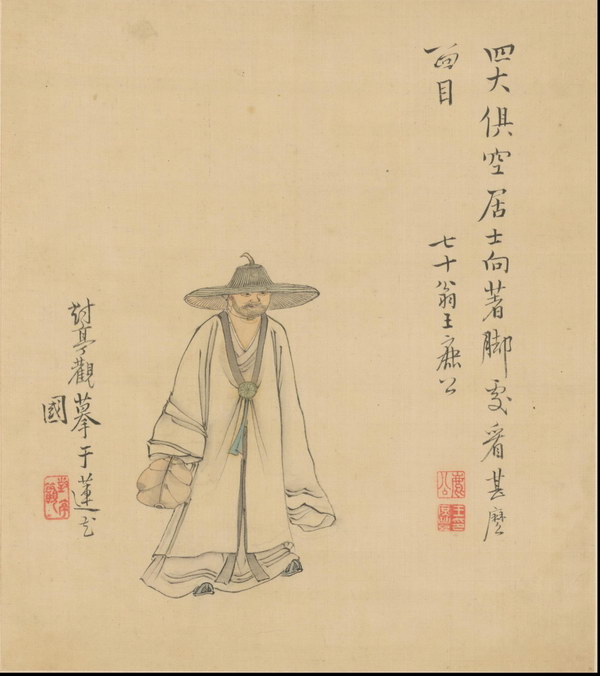 四大俱空居士向著脚處看甚麼
面目
七十翁王鹿公
亭觀摹于蓮花
國
鹿公